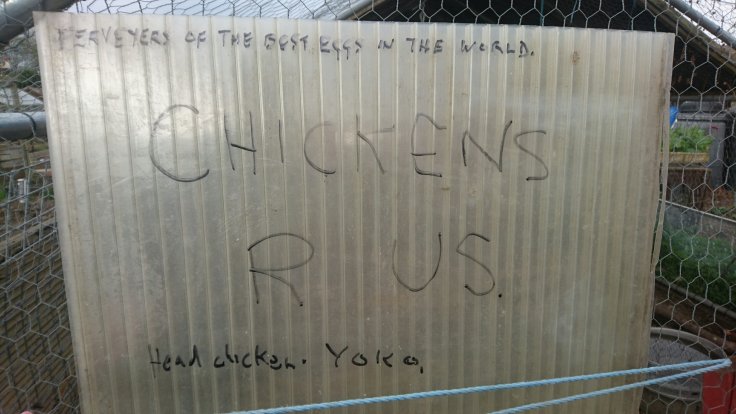 PERVEYERS OF THE BEST EGGS IN THE WORLD.
CHICKENS
R US.
Head chicken. Yoko,